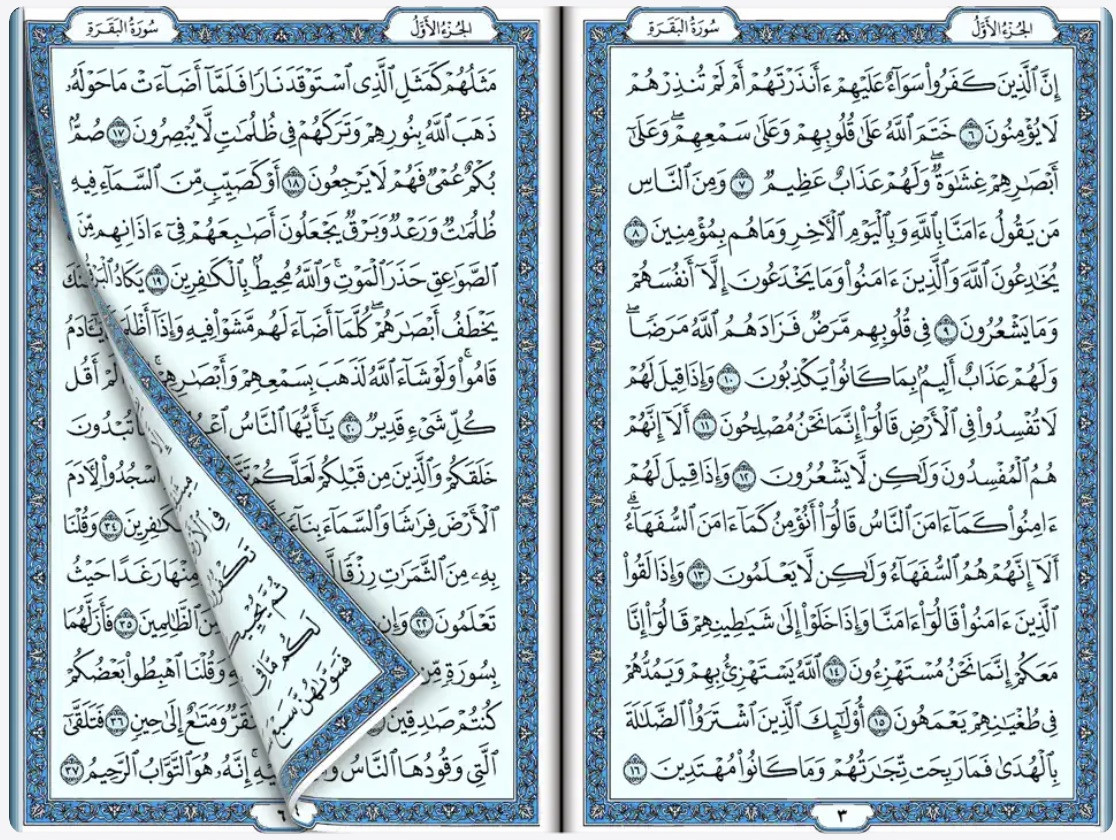 الجُزْءُ الأَوَّلُ
سُورَةُ البَقَرَةِ
إِنَّ ٱلَّذِينَ كَفَرُوا۟ سَوَآءٌ عَلَيْهِمْ ءَأَنذَرْتَهُمْ أَمْ لَمْ تُنذِرْهُمْ
لَا يُؤْمِنُونَ ٦ خَتَمَ ٱللَّهُ عَلَىٰ قُلُوبِهِمْ وَعَلَىٰ سَمْعِهِمْ ۖ وَعَلَىٰٓ
أَبْصَـٰرِهِمْ غِشَـٰوَةٌ ۖ وَلَهُمْ عَذَابٌ عَظِيمٌ ٧ وَمِنَ ٱلنَّاسِ
مَن يَقُولُ ءَامَنَّا بِٱللَّهِ وَبِٱلْيَوْمِ ٱلْـَٔاخِرِ وَمَا هُم بِمُؤْمِنِينَ ٨
يُخَـٰدِعُونَ ٱللَّهَ وَٱلَّذِينَ ءَامَنُوا۟ وَمَا يَخْدَعُونَ إِلَّآ أَنفُسَهُمْ
وَمَا يَشْعُرُونَ ٩ فِى قُلُوبِهِم مَّرَضٌ فَزَادَهُمُ ٱللَّهُ مَرَضًا ۖ
وَلَهُمْ عَذَابٌ أَلِيمٌۢ بِمَا كَانُوا۟ يَكْذِبُونَ ١٠ وَإِذَا قِيلَ لَهُمْ
لَا تُفْسِدُوا۟ فِى ٱلْأَرْضِ قَالُوٓا۟ إِنَّمَا نَحْنُ مُصْلِحُونَ ١١ أَلَآ إِنَّهُمْ
هُمُ ٱلْمُفْسِدُونَ وَلَـٰكِن لَّا يَشْعُرُونَ ١٢ وَإِذَا قِيلَ لَهُمْ
ءَامِنُوا۟ كَمَآ ءَامَنَ ٱلنَّاسُ قَالُوٓا۟ أَنُؤْمِنُ كَمَآ ءَامَنَ ٱلسُّفَهَآءُ ۗ
أَلَآ إِنَّهُمْ هُمُ ٱلسُّفَهَآءُ وَلَـٰكِن لَّا يَعْلَمُونَ ١٣ وَإِذَا لَقُوا۟
ٱلَّذِينَ ءَامَنُوا۟ قَالُوٓا۟ ءَامَنَّا وَإِذَا خَلَوْا۟ إِلَىٰ شَيَـٰطِينِهِمْ قَالُوٓا۟ إِنَّا
مَعَكُمْ إِنَّمَا نَحْنُ مُسْتَهْزِءُونَ ١٤ ٱللَّهُ يَسْتَهْزِئُ بِهِمْ وَيَمُدُّهُمْ
فِى طُغْيَـٰنِهِمْ يَعْمَهُونَ ١٥ أُو۟لَـٰٓئِكَ ٱلَّذِينَ ٱشْتَرَوُا۟ ٱلضَّلَـٰلَةَ
بِٱلْهُدَىٰ فَمَا رَبِحَت تِّجَـٰرَتُهُمْ وَمَا كَانُوا۟ مُهْتَدِينَ ١٦
٣
الجُزْءُ الأَوَّلُ
سُورَةُ البَقَرَةِ
مَثَلُهُمْ كَمَثَلِ ٱلَّذِى ٱسْتَوْقَدَ نَارًا فَلَمَّآ أَضَآءَتْ مَا حَوْلَهُۥ
ذَهَبَ ٱللَّهُ بِنُورِهِمْ وَتَرَكَهُمْ فِى ظُلُمَـٰتٍ لَّا يُبْصِرُونَ ١٧ صُمٌّۢ
بُكْمٌ عُمْىٌ فَهُمْ لَا يَرْجِعُونَ ١٨ أَوْ كَصَيِّبٍ مِّنَ ٱلسَّمَآءِ فِيهِ
ظُلُمَـٰتٌ وَرَعْدٌ وَبَرْقٌ يَجْعَلُونَ أَصَـٰبِعَهُمْ فِىٓ ءَاذَانِهِم مِّنَ
ٱلصَّوَٰعِقِ حَذَرَ ٱلْمَوْتِ ۚ وَٱللَّهُ مُحِيطٌۢ بِٱلْكَـٰفِرِينَ ١٩ يَكَادُ
يَخْطَفُ أَبْصَـٰرَهُمْ ۖ كُلَّمَآ أَضَآءَ لَهُم مَّشَوْا۟ فِيهِ وَإِذَآ
قَامُوا۟ ۚ وَلَوْ شَآءَ ٱللَّهُ لَذَهَبَ بِسَمْعِهِمْ وَأَبْصَـٰرِهِمْ ۚ أَقُل
كُلِّ شَىْءٍ قَدِيرٌ ٢٠ يَـٰٓأَيُّهَا ٱلنَّاسُ تُبْدُونَ
خَلَقَكُمْ وَٱلَّذِينَ مِن قَبْلِكُمْ لَعَلَّكُمْ ٱسْجُدُوا۟ لِـَٔادَمَ
ٱلْأَرْضَ فِرَٰشًا وَٱلسَّمَآءَ بِنَآءً ٣٤ وَقُلْنَا
بِهِۦ مِنَ ٱلثَّمَرَٰتِ رِزْقًا مِنْهَا رَغَدًا حَيْثُ
تَعْلَمُونَ ٢٢ وَإِن ٱلظَّـٰلِمِينَ ٣٥ فَأَزَلَّهُمَا
بِسُورَةٍ مِّن وَقُلْنَا ٱهْبِطُوا۟ بَعْضُكُمْ
كُنتُمْ صَـٰدِقِينَ وَمَتَـٰعٌ إِلَىٰ حِينٍ ٣٦ فَتَلَقَّىٰٓ
ٱلَّتِى وَقُودُهَا ٱلنَّاسُ إِنَّهُۥ هُوَ ٱلتَّوَّابُ ٱلرَّحِيمُ ٣٧
ثُمَّ
لَكُم مَّا فِى
فَسَوَّىٰهُنَّ سَبْعَ
٦